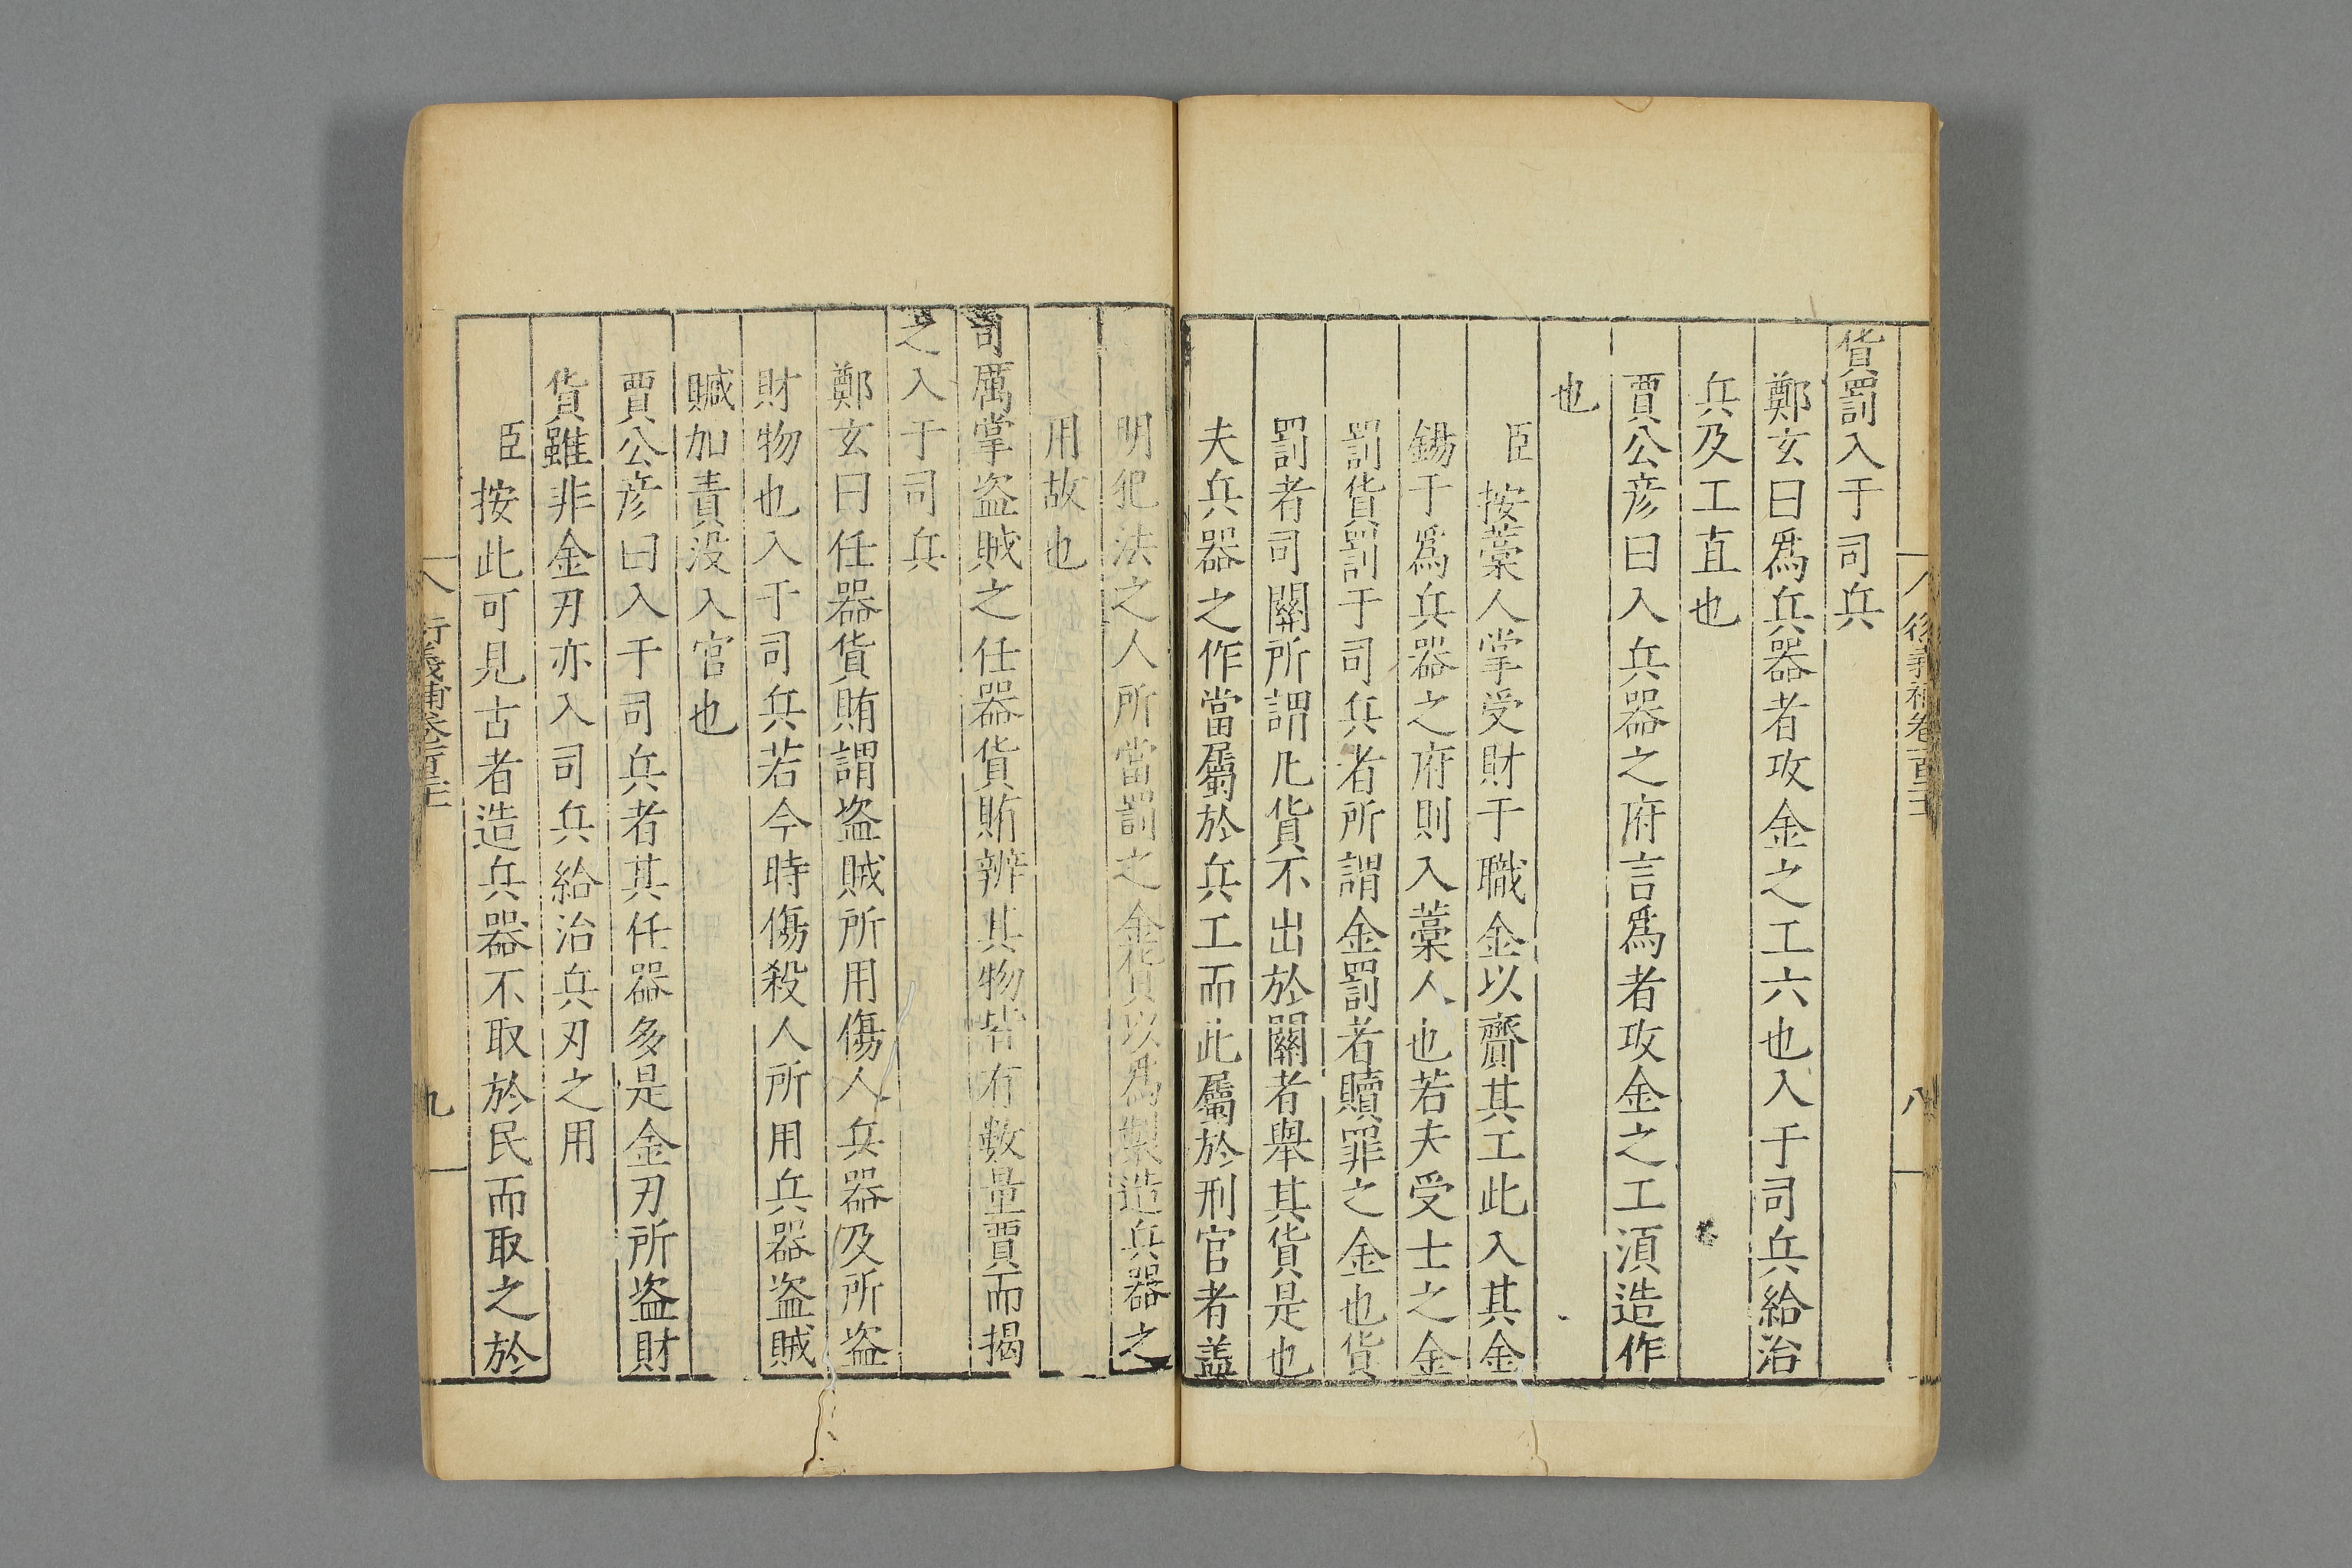 貨罰入于司兵
鄭玄曰爲兵器者攻金之工六也入于司兵給治
兵及工直也
賈公彦曰入兵器之府言爲者攻金之工湏造作
也
臣按藳人掌受財于職金以齎其工此入其金
錫于爲兵器之府則入藳人也若夫受士之金
罰貨罰于司兵者所謂金罰者贖罪之金也貨
罰者司關所謂凡貨不出於關者舉其貨是也
夫兵器之作當屬於兵工而此屬於刑官者葢
明犯法之人所當罰之金貨以爲製造兵器之
用故也
司厲掌盗賊之任器貨賄辨其物皆有數量賈而揭
之入于司兵
鄭玄曰任器貨賄謂盗賊所用傷人兵器及所盗
財物也入于司兵若今時傷殺人所用兵器盗賊
贓加責没入官也
賈公彦曰入于司兵者其任器多是金刃所盗財
貨雖非金刃亦入司兵給治兵刃之用
臣按此可見古者造兵器不取於民而取之於
九